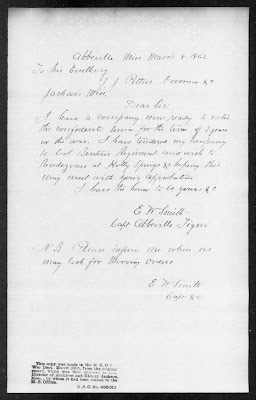 Abbeville Miss March 8 1862
To his Excellency
J J Pettus Governor &c
Jackson Miss.
Dear Sir
I have a company now ready to enter
the confederate service for the term of 3 years
or the war. I have tendered my company
to Col Regiment and wish to
Rendezvous at Holly Springs & hoping this
may meet with your approbation
I have the honor to be yours &c
E W Smith
Capt Abbeville Tigers
N.B. Please inform me when we
may look for moving orders
E W Smith
Capt &c
This copy was made in the
War Dept. March from the original
record, which was then
Director of Archives and History, Jackson,
Miss., by whom it had been loaned to the
M. S. Office.